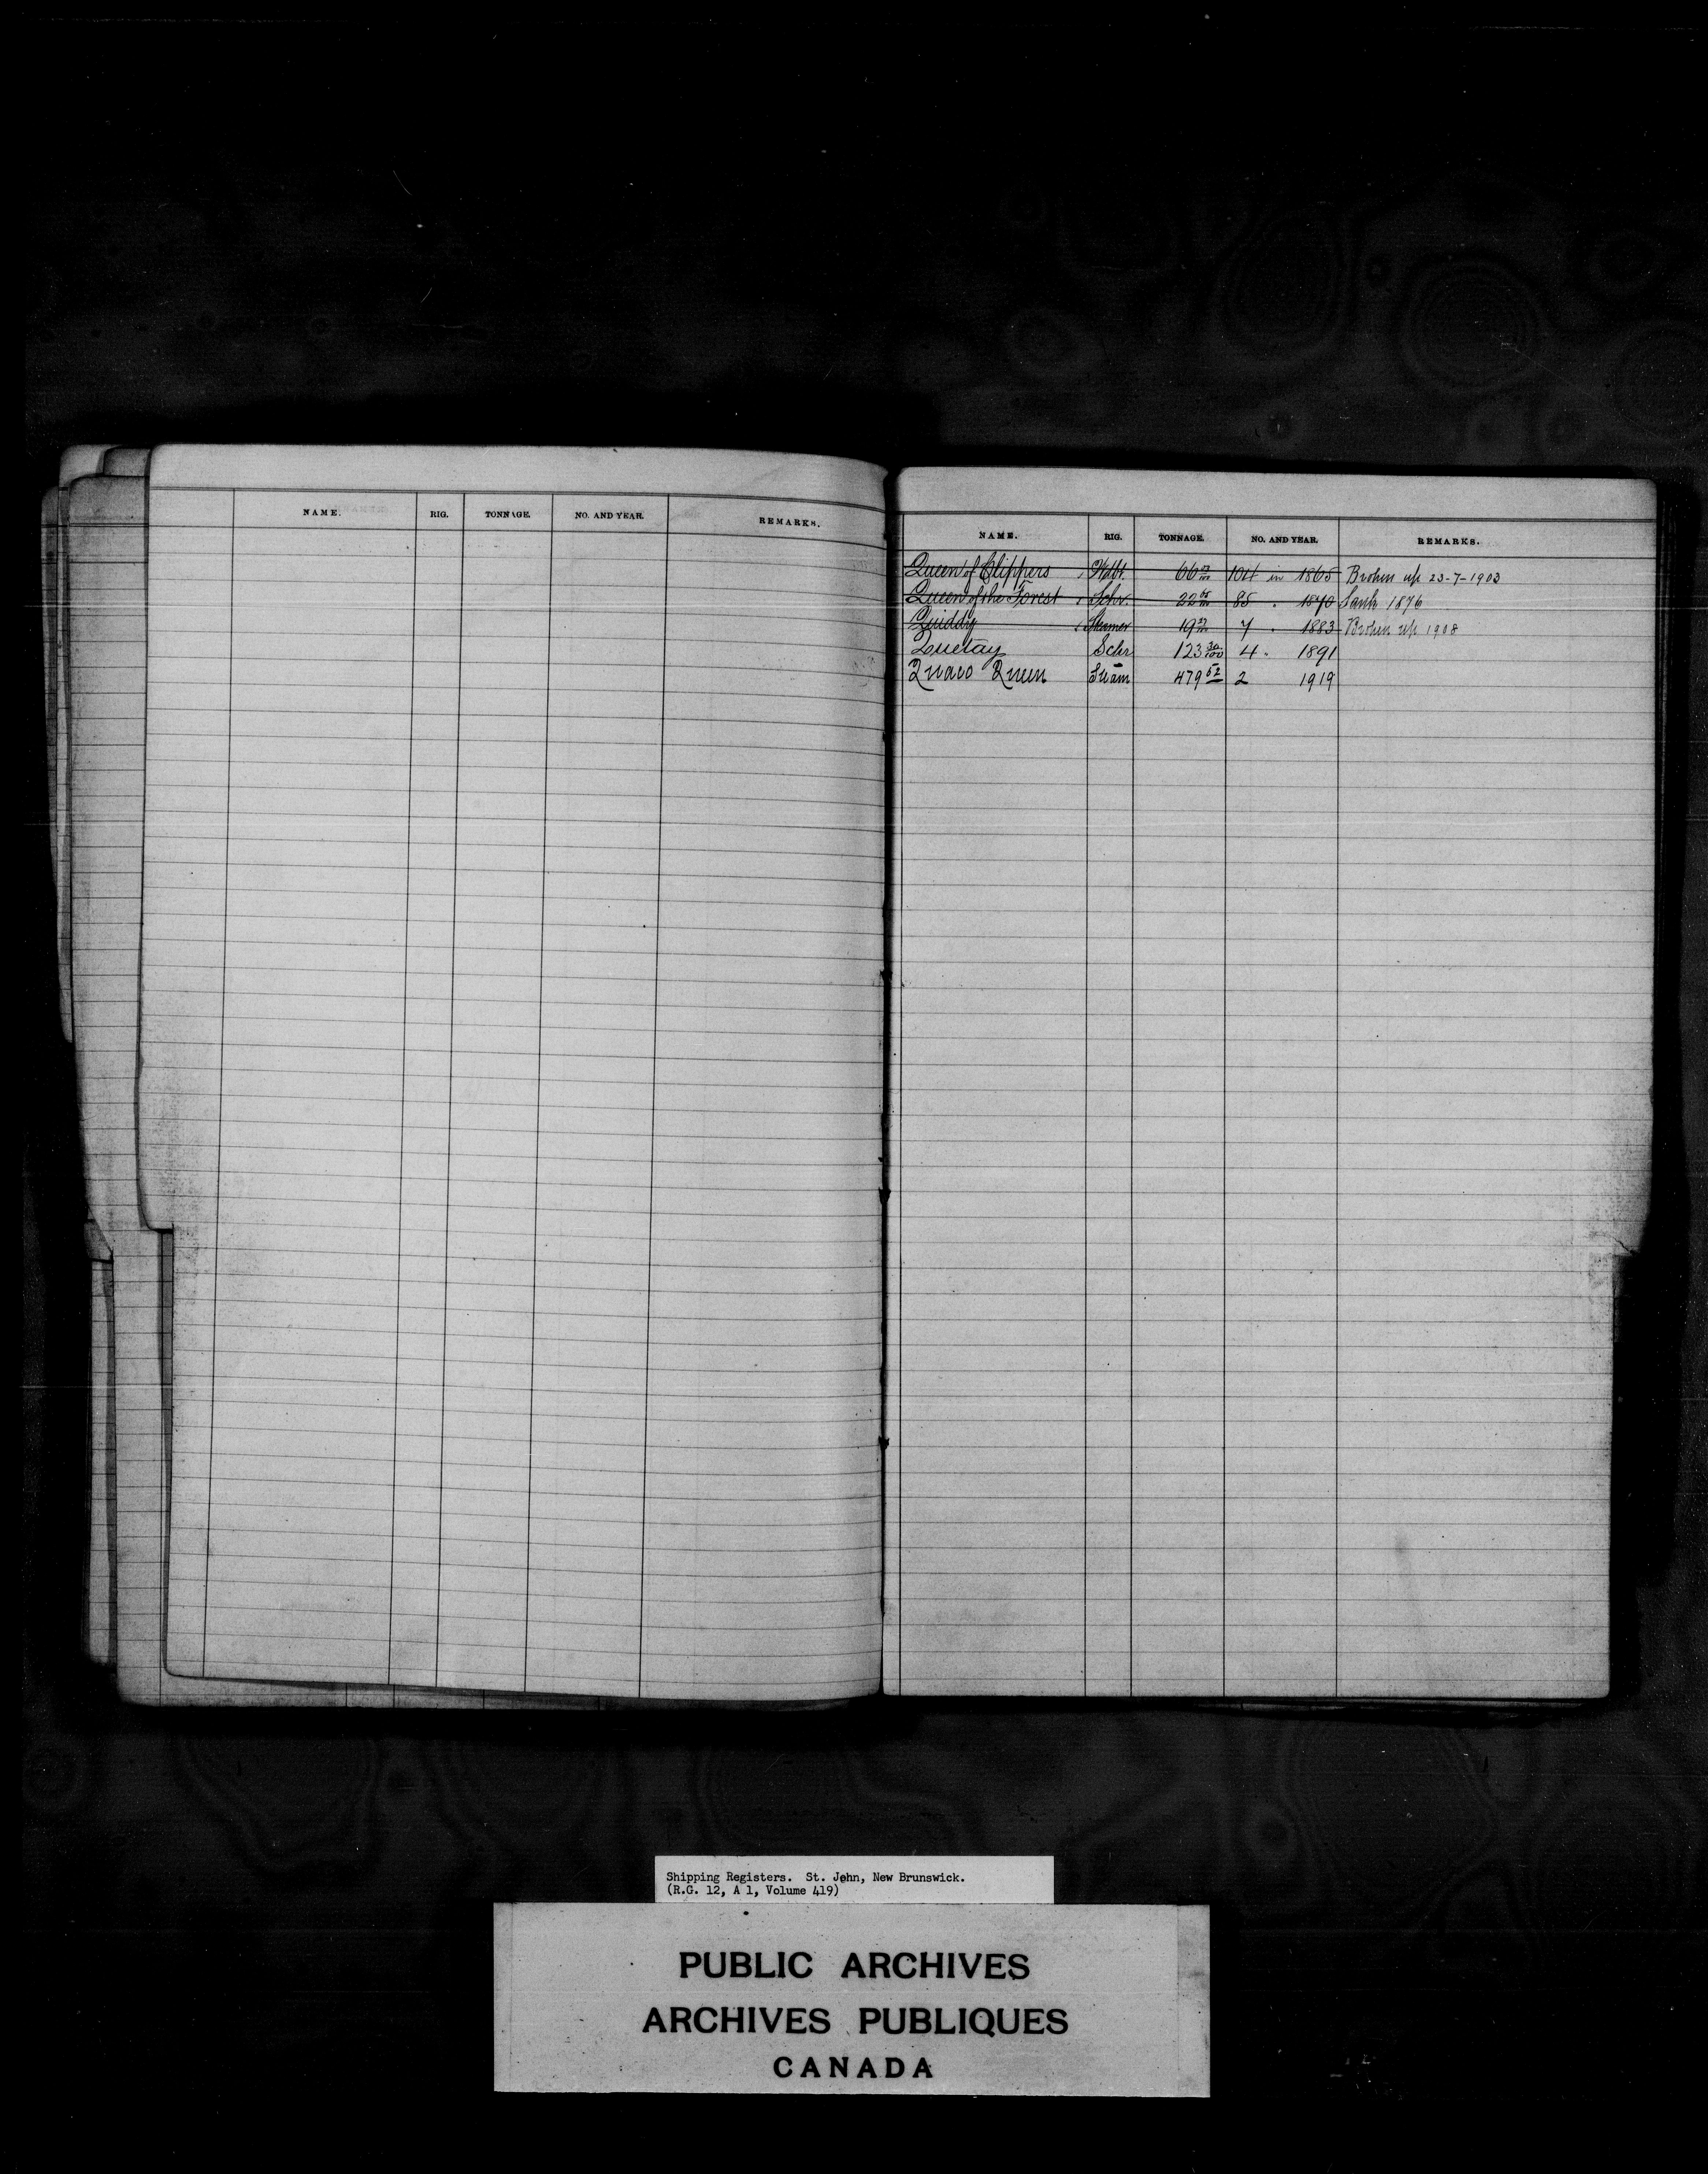 NAME. RIG. TONNAGE. NO. AND YEAR. REMARKS.
NAME. RIG. TONNAGE. NO. AND YEAR. REMARKS.
Queen of Clippers Wdbt. 66 104 in 1865 Broken up 23-7-1903
Queen of the Forest Schr. 22 85 " 1870 Sank 1876
Quiddy Steamer 19 7 " 1883 Broken up 1908
Quetay Schr 123 30/100 4 " 1891
Quaco Queen Steam 479 52 2 1919
Shipping Registers. St. John, New Brunswick.
(R.G. 12, A 1, Volume 419)
PUBLIC ARCHIVES
ARCHIVES PUBLIQUES
CANADA